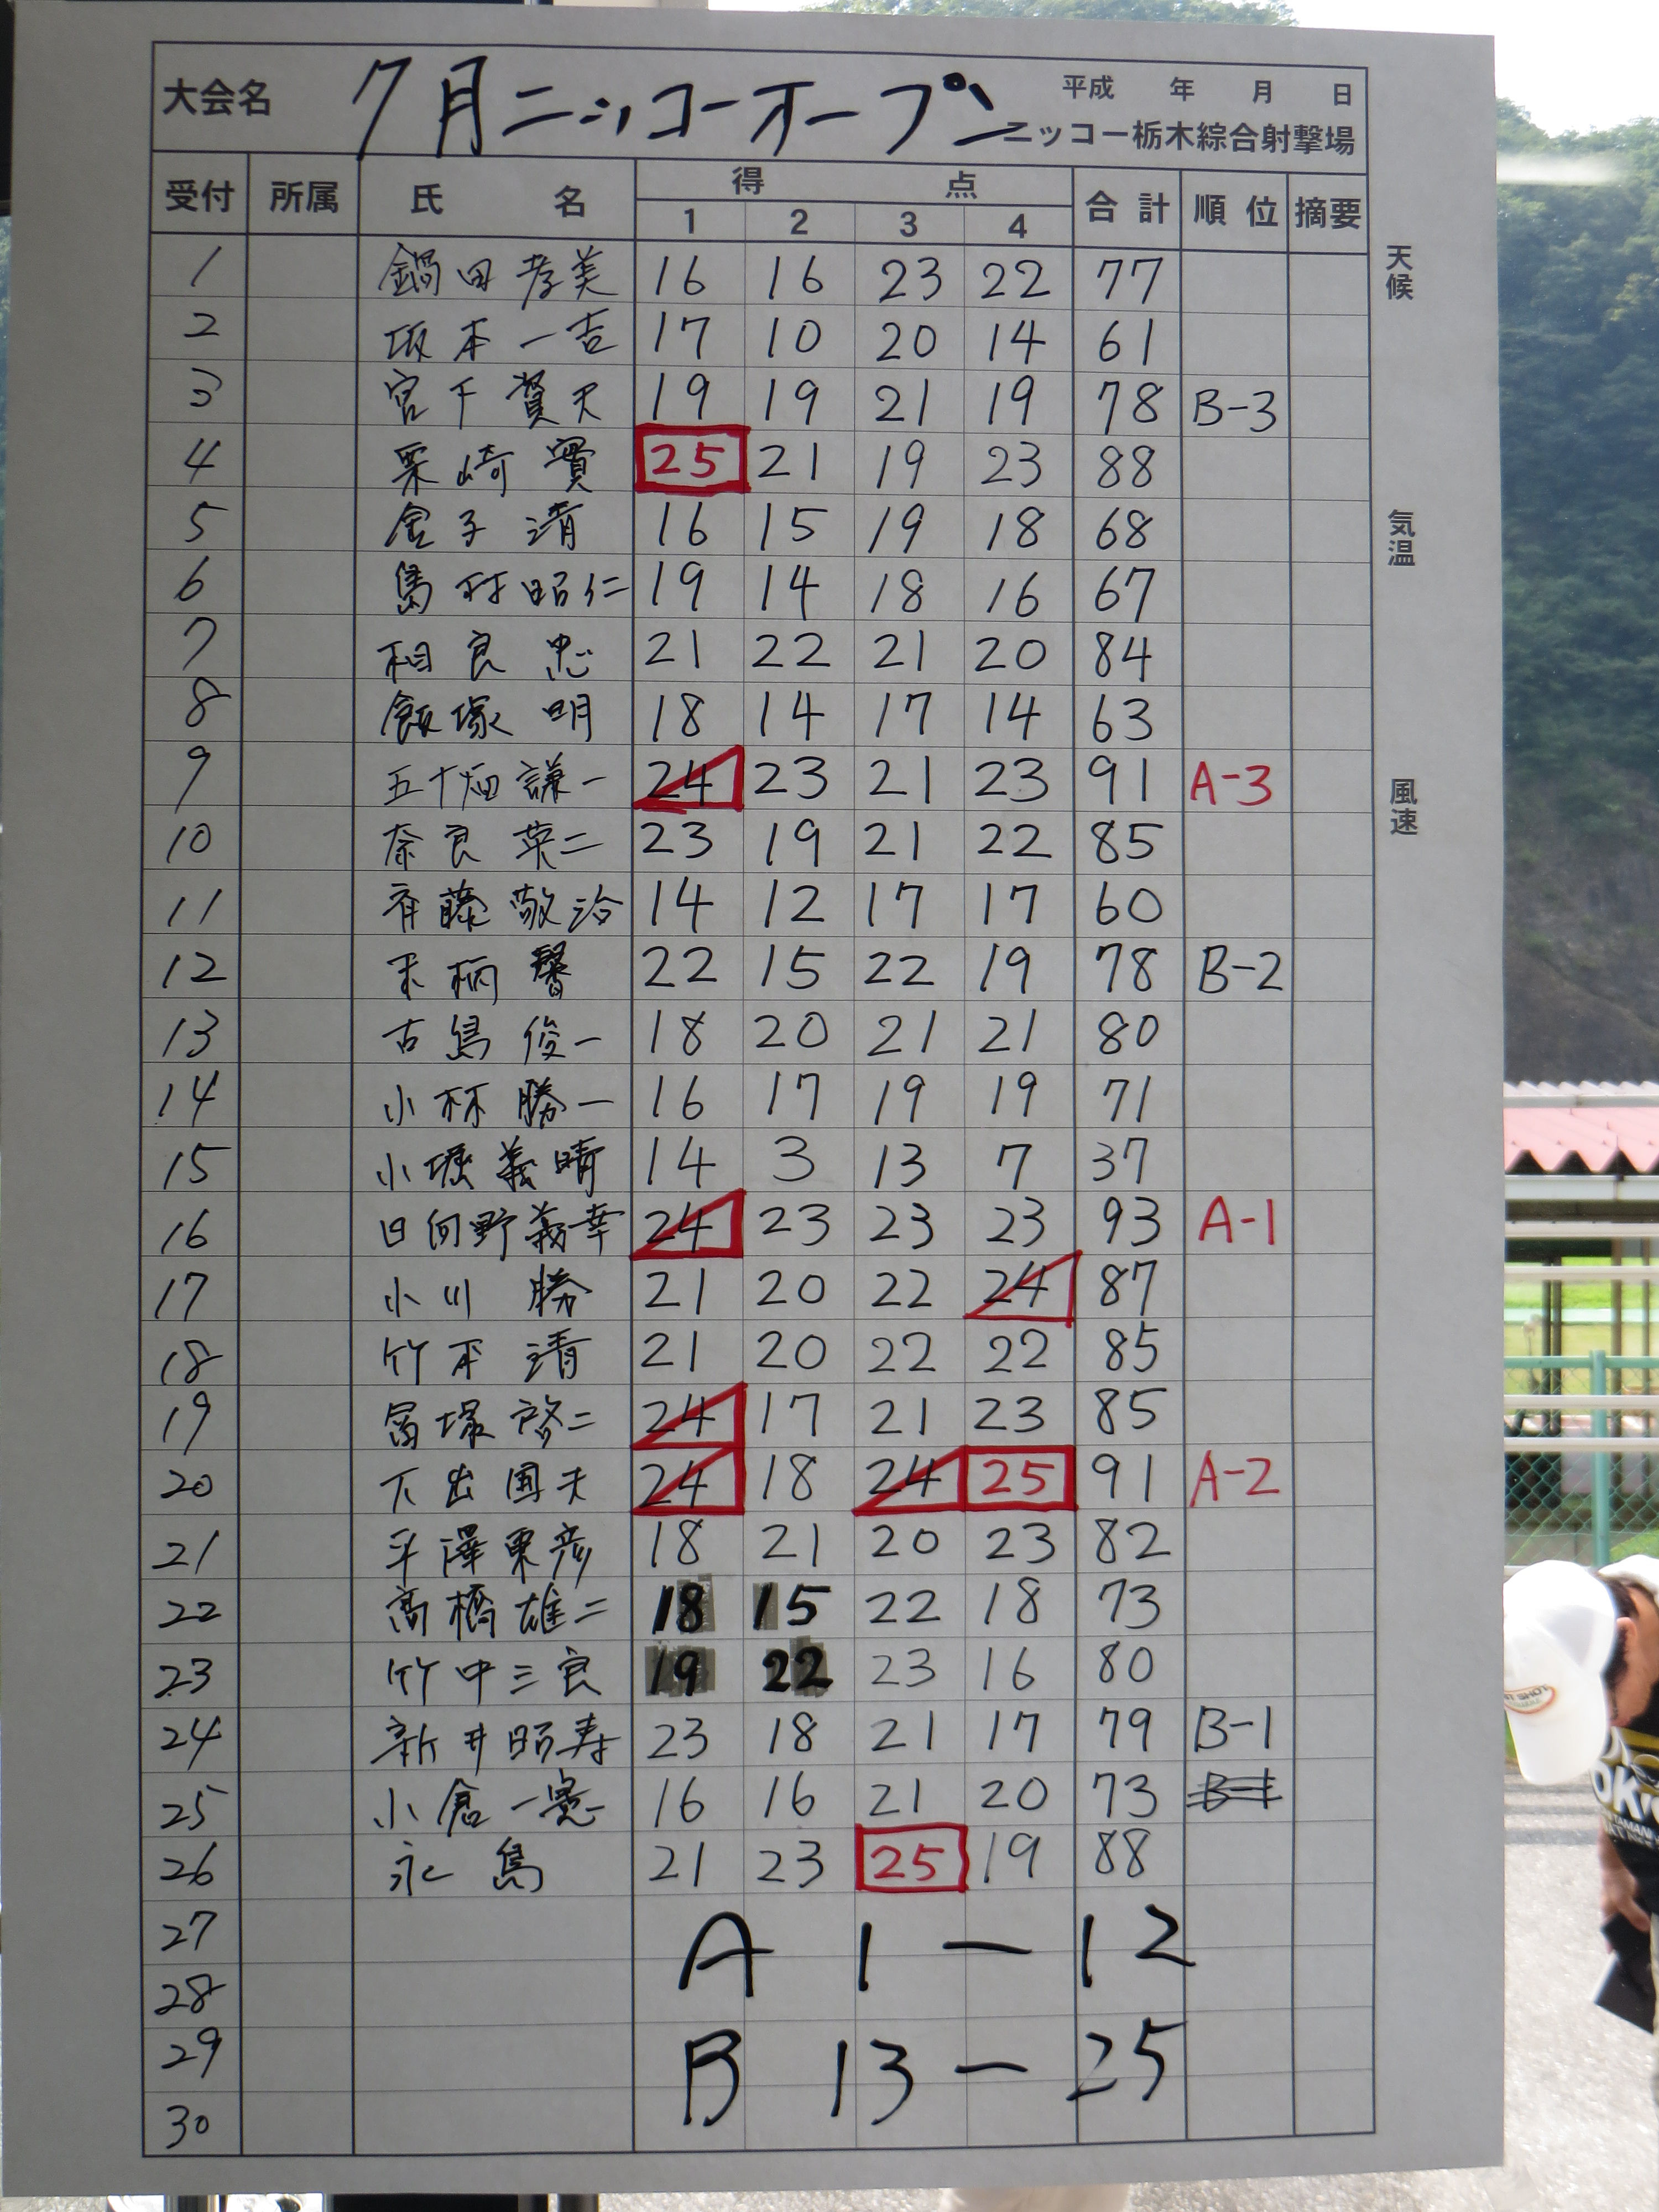 大会名 7月ニッコーオープン 平成 年 月 日
ニッコー栃木綜合射撃場
受付 所属 氏 名 得 点 合計 順位 摘要
1 2 3 4
1 鍋田孝美 16 16 23 22 77
2 坂本一吉 17 10 20 14 61
3 宮下賢夫 19 19 21 19 78 B-3
4 栗崎實 25 21 19 23 88
5 金子清 16 15 19 18 68
6 島村昭仁 19 14 18 16 67
7 相良忠 21 22 21 20 84
8 飯塚明 18 14 17 14 63
9 五十畑謙一 24 23 21 23 91 A-3
10 奈良英二 23 19 21 22 85
11 斉藤敬治 14 12 17 17 60
12 末柄馨 22 15 22 19 78 B-2
13 古島俊一 18 20 21 21 80
14 小林勝一 16 17 19 19 71
15 小堀義晴 14 3 13 7 37
16 日向野義幸 24 23 23 23 93 A-1
17 小川勝 21 20 22 24 87
18 竹本清 21 20 22 22 85
19 冨塚啓二 24 17 21 23 85
20 下出国夫 24 18 24 25 91 A-2
21 平澤東彦 18 21 20 23 82
22 高橋雄二 18 15 22 18 73
23 竹中三良 19 22 23 16 80
24 新井昭寿 23 18 21 17 79 B-1
25 小倉一憲 16 16 21 20 73 B-1
26 永島 21 23 25 19 88
27 A 1-12
28
29 B 13-25
30
天候
気温
風速